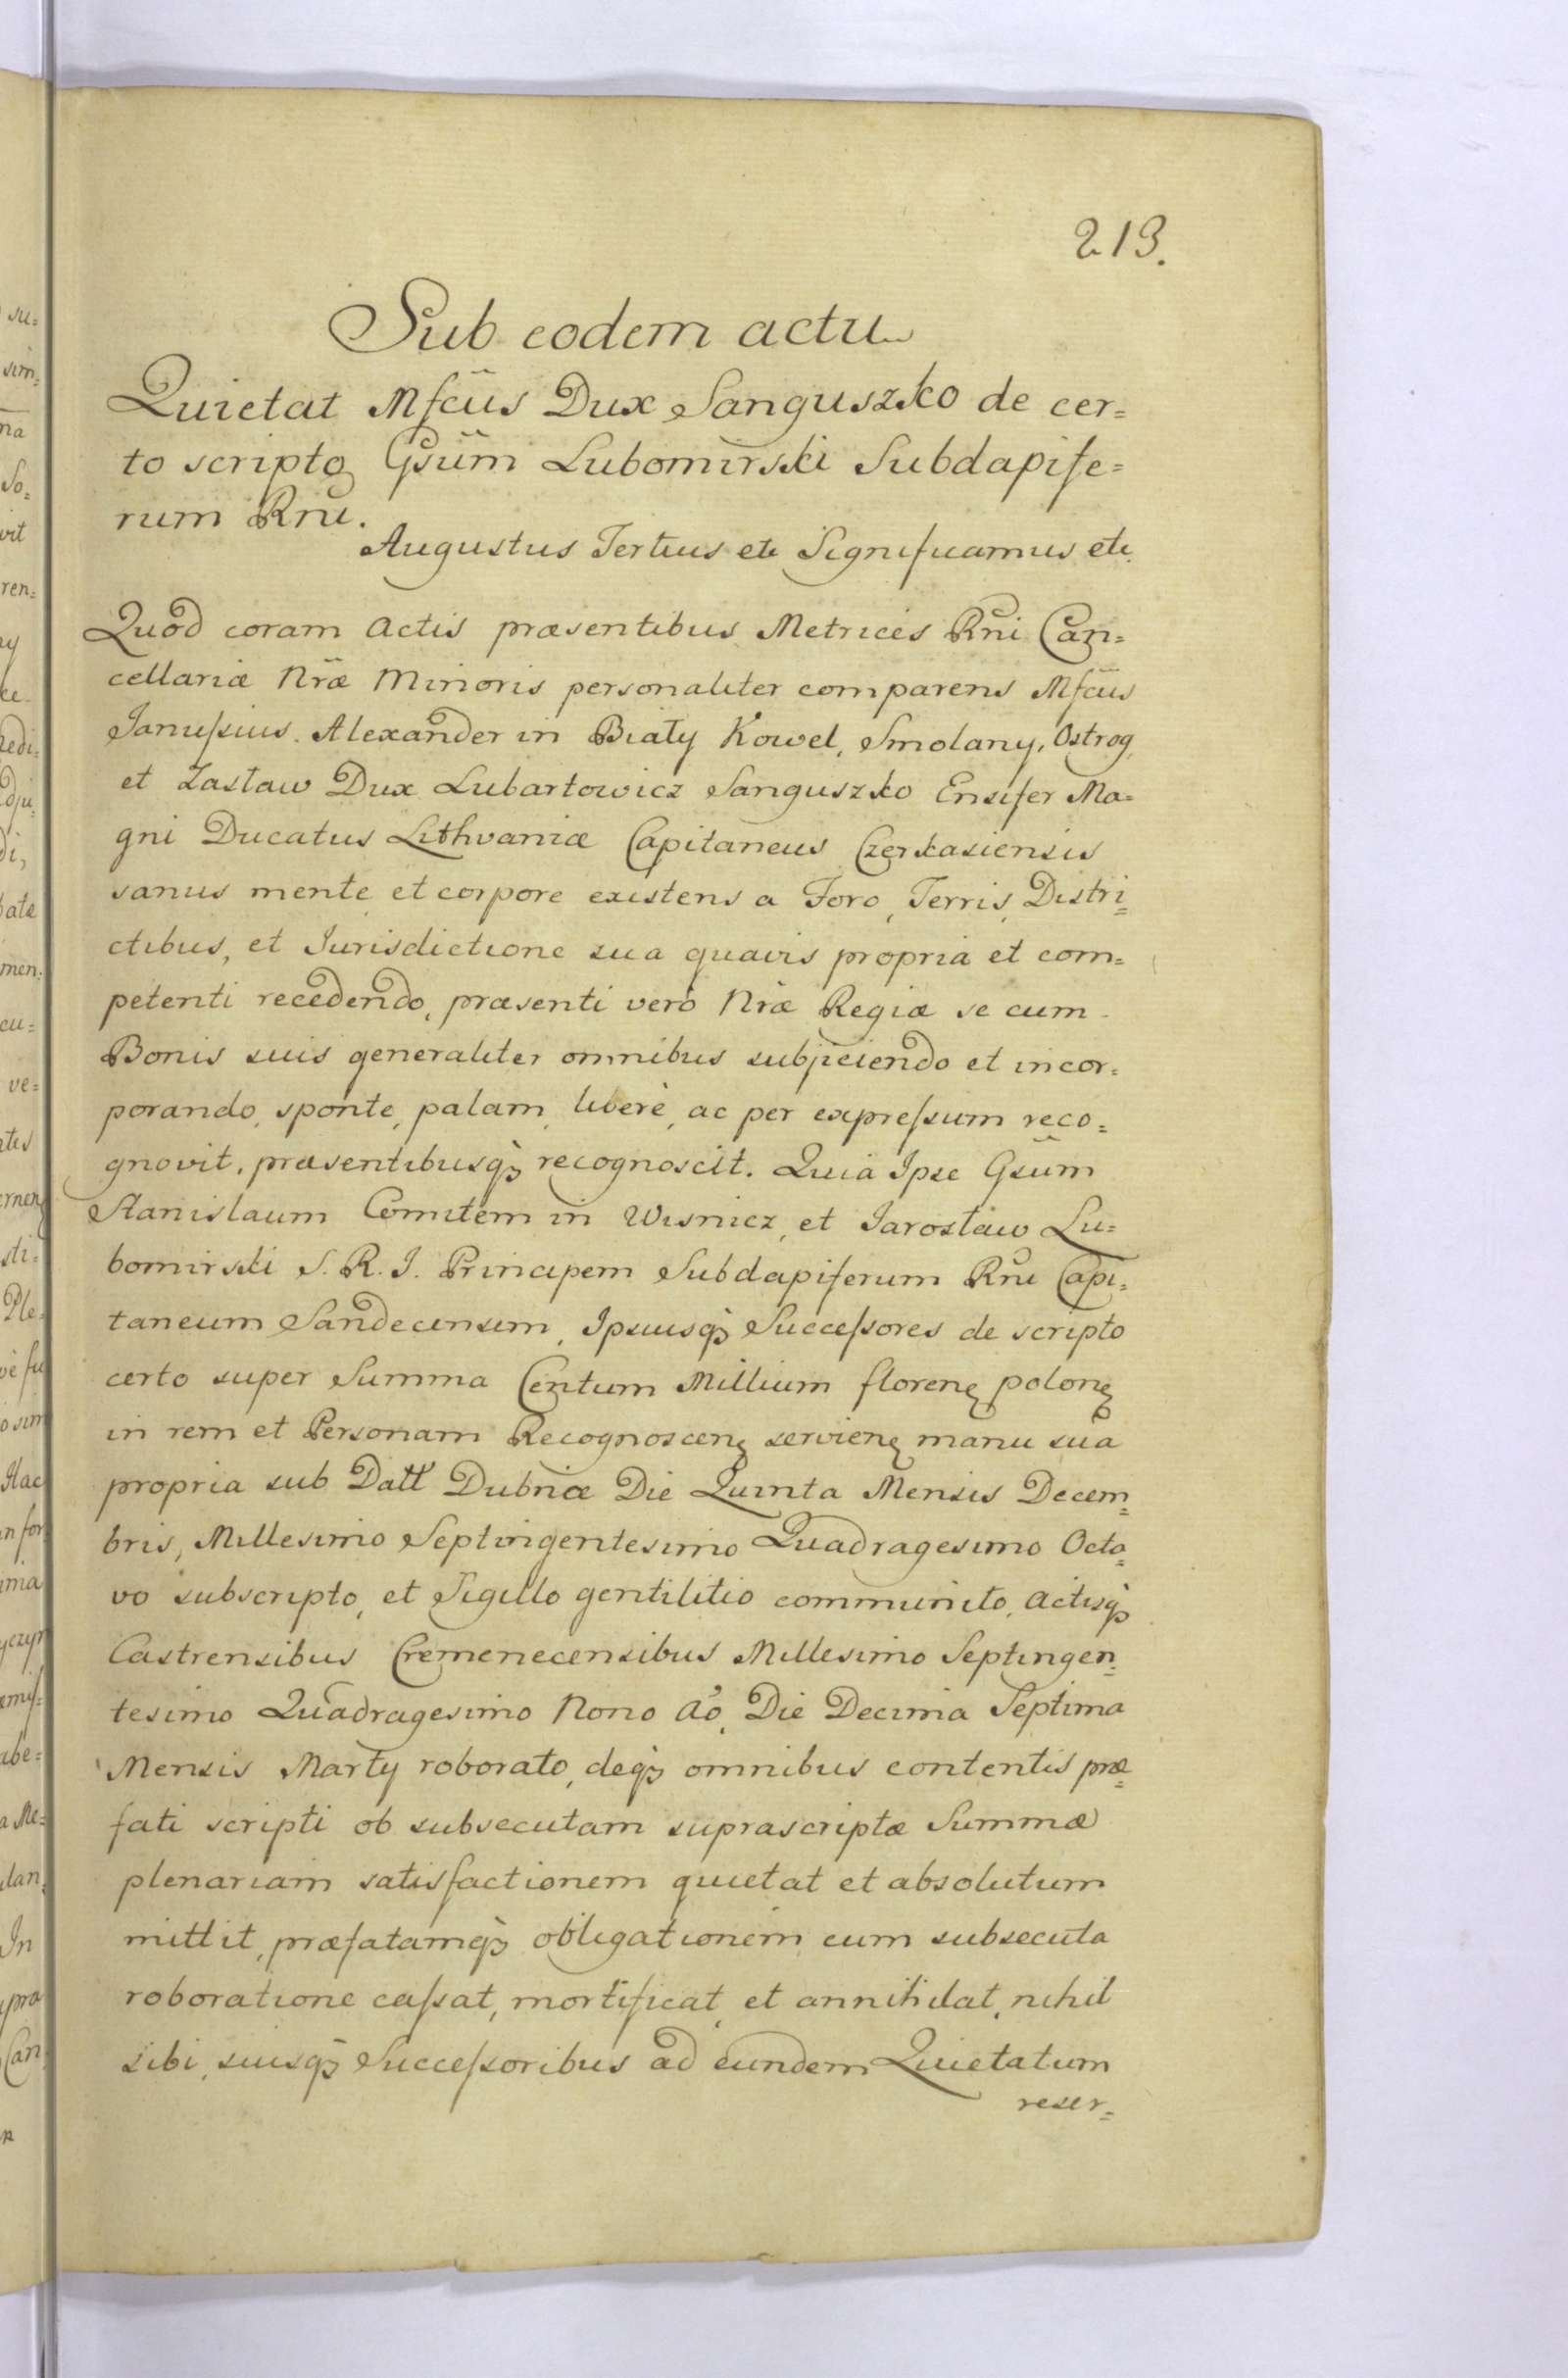 213.
Sub eodem actu
Quietat Mfcus Dux Sanguszko de cer=
to scripto Gsum Lubomirski Subdapife=
rum Rnu.
Augustus Tertius etc Significamus etc.
Quod coram actis præsentibus Metrices Rni Can=
cellariæ Nræ Minoris personaliter comparens Mfcus
Janussius Alexander in Biały Kowel, Smolany, Ostrog,
et Zasław Dux Lubartowicz Sanguszko Ensifer Ma=
gni Ducatus Lithvaniæ Capitaneus Czerkasiensis
sanus mente et corpore existens a Foro, Terris, Distri=
ctibus, et Jurisdictione sua quavis propria et com=
petenti recedendo, præsenti verò Nræ Regiæ se cum
Bonis suis generaliter omnibus subjiciendo et incor=
porando, sponte, palam, liberè, ac per expressum reco=
gnovit, præsentibusq₃ recognoscit. Quia Ipse Gsum
Stanislaum Comitem in Wisnicz, et Jarosław Lu=
bomirski S. R. J. Principem Subdapiferum Rnu Capi=
taneum Sandecensem, Ipsiusq₃ Successores de scripto
certo super Summa Centum Millium floren polon
in rem et Personam Recognoscen servien manu sua
propria sub Datt Dubniæ Die Quinta Mensis Decem=
bris, Millesimo Septingentesimo Quadragesimo Octa=
vo subscripto, et Sigillo gentilitio communito, actisq₃
Castrensibus Cremenecensibus Millesimo Septingen=
tesimo Quadragesimo Nono Ao, Die Decima Septima
Mensis Martij roborato, deq₃ omnibus contentis præ=
fati scripti ob subsecutam suprascriptæ Summæ
plenariam satisfactionem quietat et absolutum
mittit, præfatamq₃ obligationem cum subsecuta
roboratione cassat, mortificat, et annihilat, nihil
sibi, suisq₃ Successoribus ad eundem Quietatum
reser=